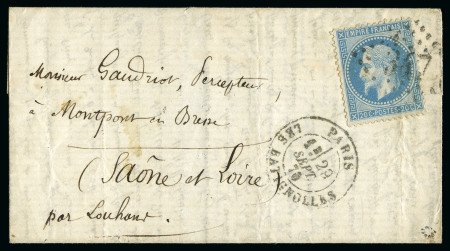 EMPIRE FRANÇAIS
20c POSTES 20c
Monsieur Gaudriot, Percepteur,
à Montpont en Bresse
(Saône et Loire)
par Louhans.
PARIS
29
SEPT.
70
LES BATIGNOLLES